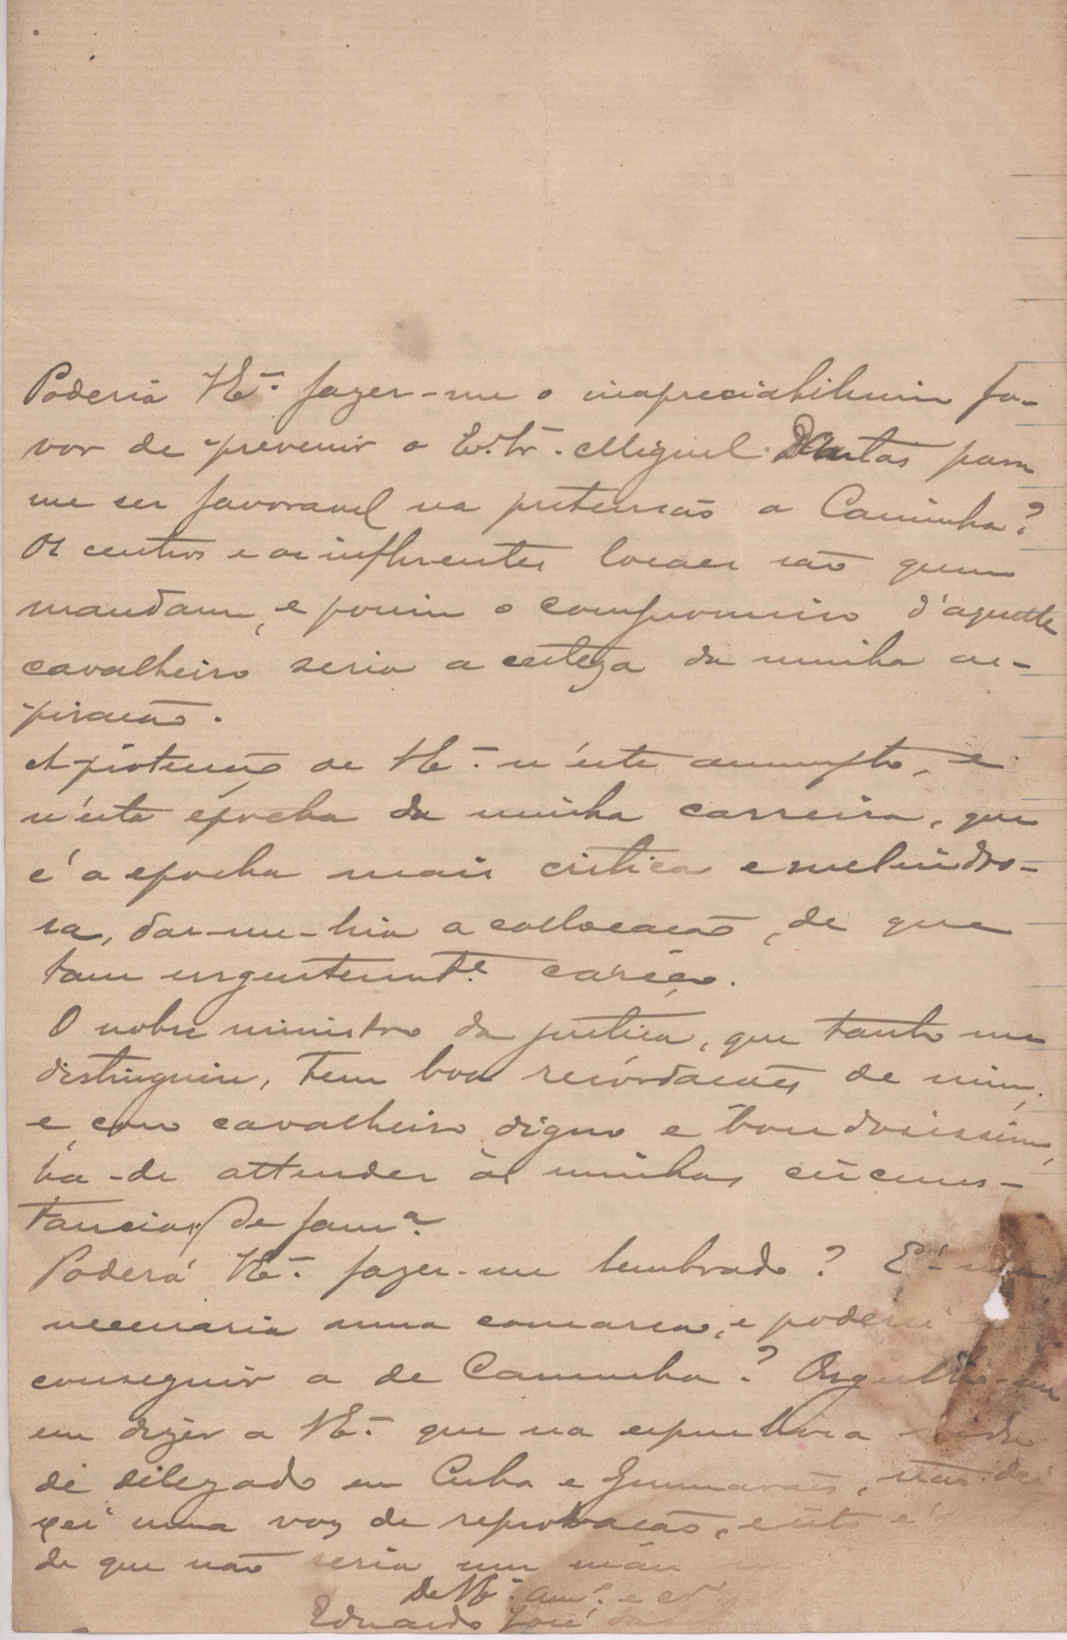 Poderia VEª. fazer-me o inapreciabilissimo fa-
vor de prevenir o Ex.Sr. Miguel Dantas para
me ser favoravel na pretensão a Caminha?
Os centros e as influentes locaes são quem
mandam, e porim o compromisso d'aquelle
cavalheiro seria a certeza da minha as-
piracão.
A protecção de VEª. n'este assumpto, e
n'esta épocha da minha carreira, que
é a epocha mais critica e melindro-
sa, dar-me-hia a collocacão, de que
tam urgentemt.e caréço.
O nobre ministro da justica, que tanto me
distinguiu, tem boas recórdacões de mim,
e como cavalheiro digno e bondosissimo,
ha-de attender ás minhas circums-
tancias de fam.ª
Poderá VEª. fazer-me lembrado? É-me
necessaria uma comarca, e poderei
conseguir a de Caminha? Orgulho-me
em dizer a VEª. que na espinhosa vida
de delegado em Cuba e Guimarães, não dei
xei uma voz de reprovacão, e isto é
de que não seria um máu
De VEª. am.º e cr.º
Eduardo José da